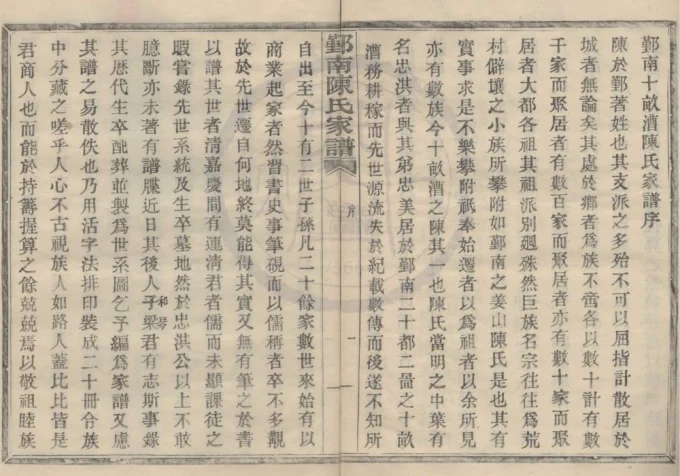 鄞南十畝漕陳氏家譜序
陳於鄞著姓也其支派之多殆不可以屈指計散居於
城者無論矣其處於鄉者爲族不啻各以數十計有數
千家而聚居者有數百家而聚居者亦有數十家而聚
居者大都各祖其祖派別逈殊然巨族名宗往往爲荒
村僻壤之小族所攀附如鄞南之姜山陳氏是也其有
實事求是不樂攀附祇奉始遷者以爲祖者以余所見
亦有數族今十畝漕之陳其一也陳氏當明之中葉有
名忠洪者與其弟忠美居於鄞南二十都二啚之十畝
漕務耕稼而先世源流失於紀載數傳而後遂不知所
鄞南陳氏家譜
序
一
自出至今十有二世子孫凡二十餘家數世來始有以
商業起家者然習書史事筆硯而以儒稱者卒不多覯
故於先世遷自何地終莫能得其實又無有筆之於書
以譜其世者淸嘉慶間有運淸君者儒而未顯課徒之
暇嘗錄先世系統及生卒墓地然於忠洪公以上不敢
臆斷亦未著有譜牒近日其後人子梁和琴君有志斯事錄
其歷代生卒配葬並製爲世系圖乞予編爲家譜又慮
其譜之易散佚也乃用活字法排印裝成二十冊令族
中分藏之嗟乎人心不古視族人如路人蓋比比皆是
君商人也而能於持籌握算之餘兢兢焉以敬祖睦族